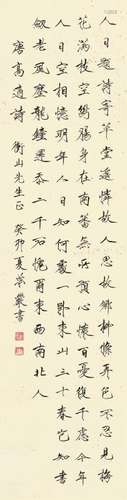 人日題詩寄草堂遙憐故人思故鄉柳條弄色不忍見梅
花滿枝空斷腸身在南蕃無所預心懷百憂復千慮今年
人日空相憶明年人日知何處一臥東山三十春豈知書
劍老風塵龍鍾還忝二千石愧爾東西南北人
唐高適詩 衡山先生正 癸卯夏 書